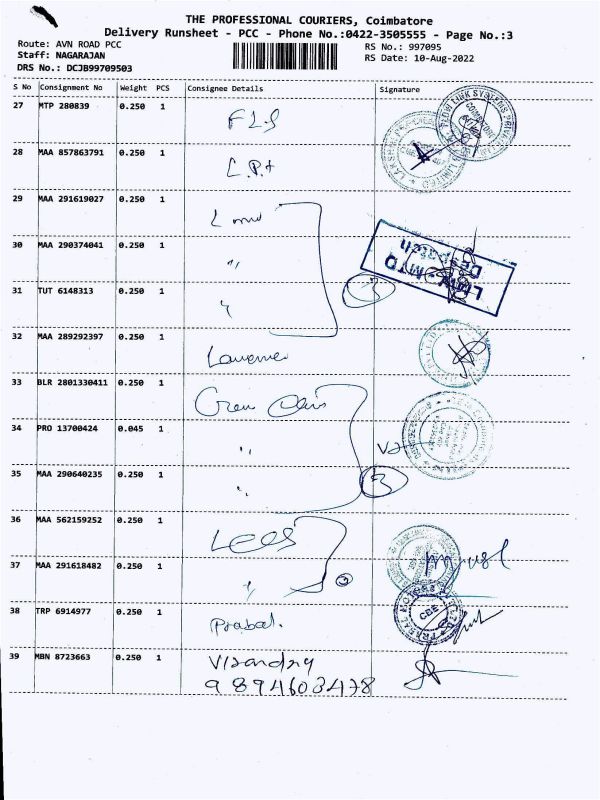 THE PROFESSIONAL COURIERS, Coimbatore
Delivery Runsheet - PCC - Phone No.:0422-3505555 - Page No.:3
Route: AVN ROAD PCC
RS No.: 997095
Staff: NAGARAJAN
RS Date: 10-Aug-2022
DRS No.: DCJB99709503
S No Consignment No Weight PCS Consignee Details Signature
27 MTP 280839 0.250 1 FLS
28 MAA 857863791 0.250 1 L.P.t
29 MAA 291619027 0.250 1
30 MAA 290374041 0.250 1 "
31 TUT 6148313 0.250 1 "
3
LMW-MTD
Despatch
32 MAA 289292397 0.250 1
33 BLR 2801330411 0.250 1
34 PRO 13700424 0.045 1 "
35 MAA 290640235 0.250 1 "
3
36 MAA 562159252 0.250 1 LEOS
37 MAA 291618482 0.250 1 "
2
CBE
38 TRP 6914977 0.250 1 Prabal.
39 MBN 8723663 0.250 1
9894603478